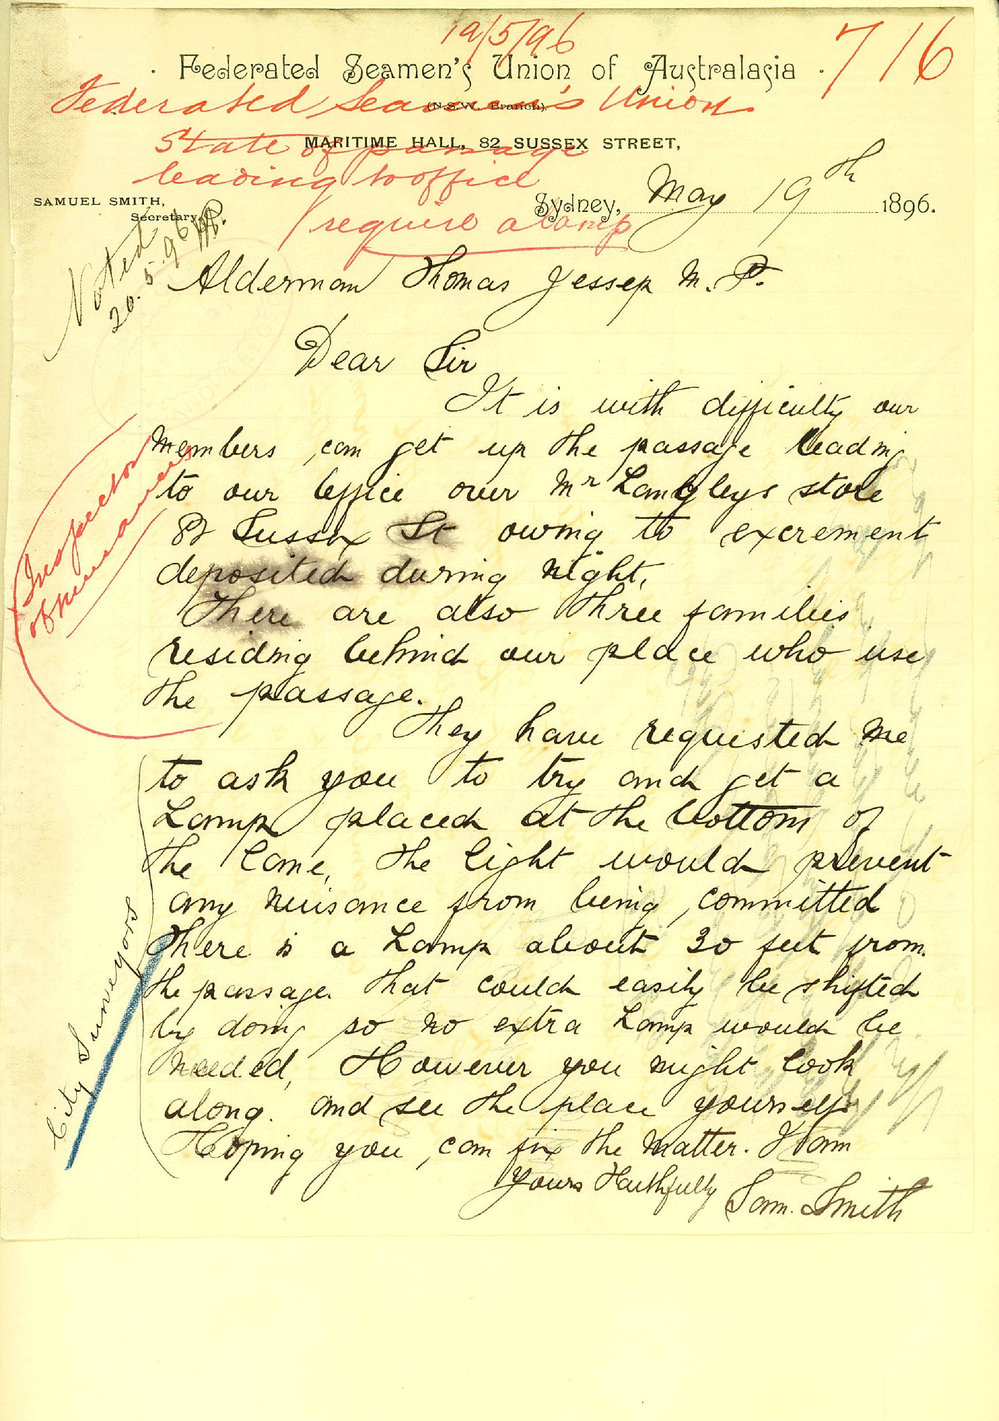 19/5/96
716
Federated Seamen's Union of Australasia
Federated Seamen's Union
(N.S.W. Branch).
MARITIME HALL, 82 SUSSEX STREET,
State of passage
leading to office
/ require a lamp
SAMUEL SMITH,
Secretary.
Sydney, May 19th 1896.
Noted
20.5.96
Alderman Thomas Jessep M.P.
Dear Sir
It is with difficulty our
members can get up the passage leading
to our office over Mr Langleys store
82 Sussex St owing to excrement
deposited during night.
There are also three families
residing behind our place who use
the passage.
They have requested me
to ask you to try and get a
Lamp placed at the bottom of
the lane, the light would prevent
any nuisance from being committed
there is a Lamp about 30 feet from
the passage that could easily be shifted
by doing so no extra Lamp would be
needed, However you might look
along and see the place yourself
Hoping you can fix the matter. I am
Yours Faithfully Sam. Smith
Inspector
of nuisances
City Surveyor